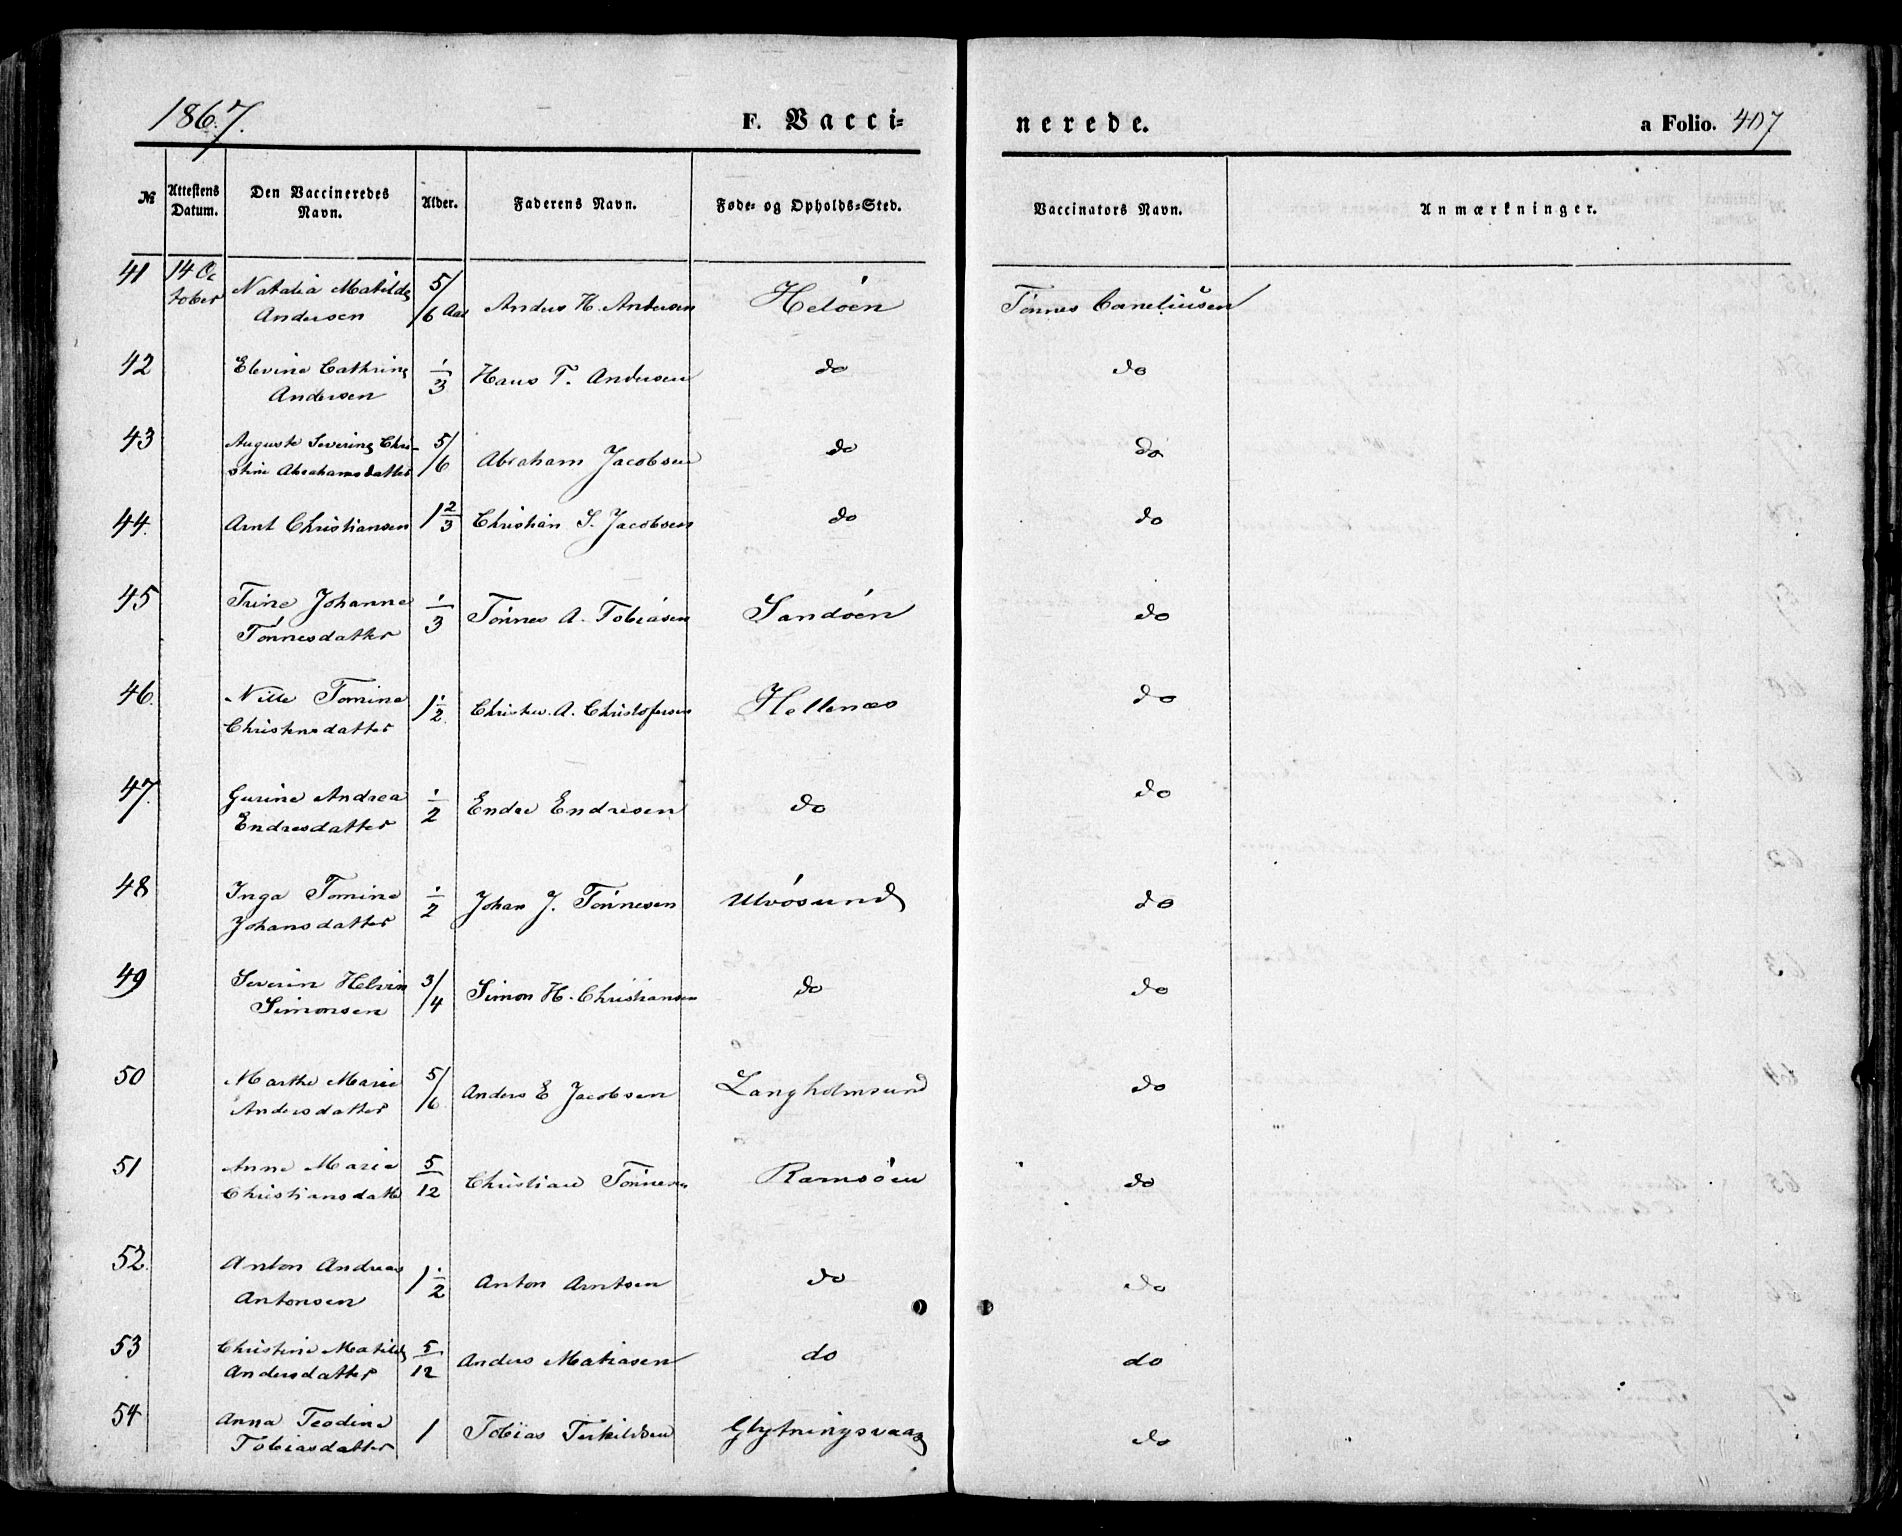 1867.
F. Vacci-
nerede.
a Folio. 407
№
Attestens Datum.
Den Vaccineredes Navn.
Alder.
Faderens Navn.
Føde- og Opholds-Sted.
Vaccinators Navn.
Anmærkninger.
41 14 Oc Natalia Matilde 5/6 Aar Anders H. Andersen Heløen Tønnes Corneliusen
tober Andersen
42 Elevine Cathrine 1/3 Hans T. Andersen do do
Andersen
43 Auguste Severine Chri- 5/6 Abraham Jacobsen do do
stine Abrahamsdatter
44. Arnt Christiansen 1 2/3 Christian S. Jacobsen do do
45 Trine Johanne 1/3 Tønnes A. Tobiasen Sandøen do
Tønnesdatter
46. Nille Tomine 1 1/2. Christen. A. Christofersen Hellenæs do
Christensdatter
47. Gurine Andrea 1/2 Endre Endresen do do
Endresdatter
48 Inga Tomine 1/2 Johan J. Tønnesen Ulvøsund do
Johansdatter
49 Severin Helvin 3/4 Simon H. Christiansen do do
Simonsen
50 Marthe Marie 5/6 Anders E Jacobsen Langholmsund do
Andersdatter
51 Anne Marie 5/12 Christian Tønnesen Ramsøen do
Christiansdatter
52. Anton Andreas 1 1/2 Anton Arntsen do do
Antonsen
53 Christine Matilde 5/12 Anders Matiasen do do
Andersdatter
54 Anna Teodine 1 Tobias Terkildsen Glytningsvaag do
Tobiasdatter